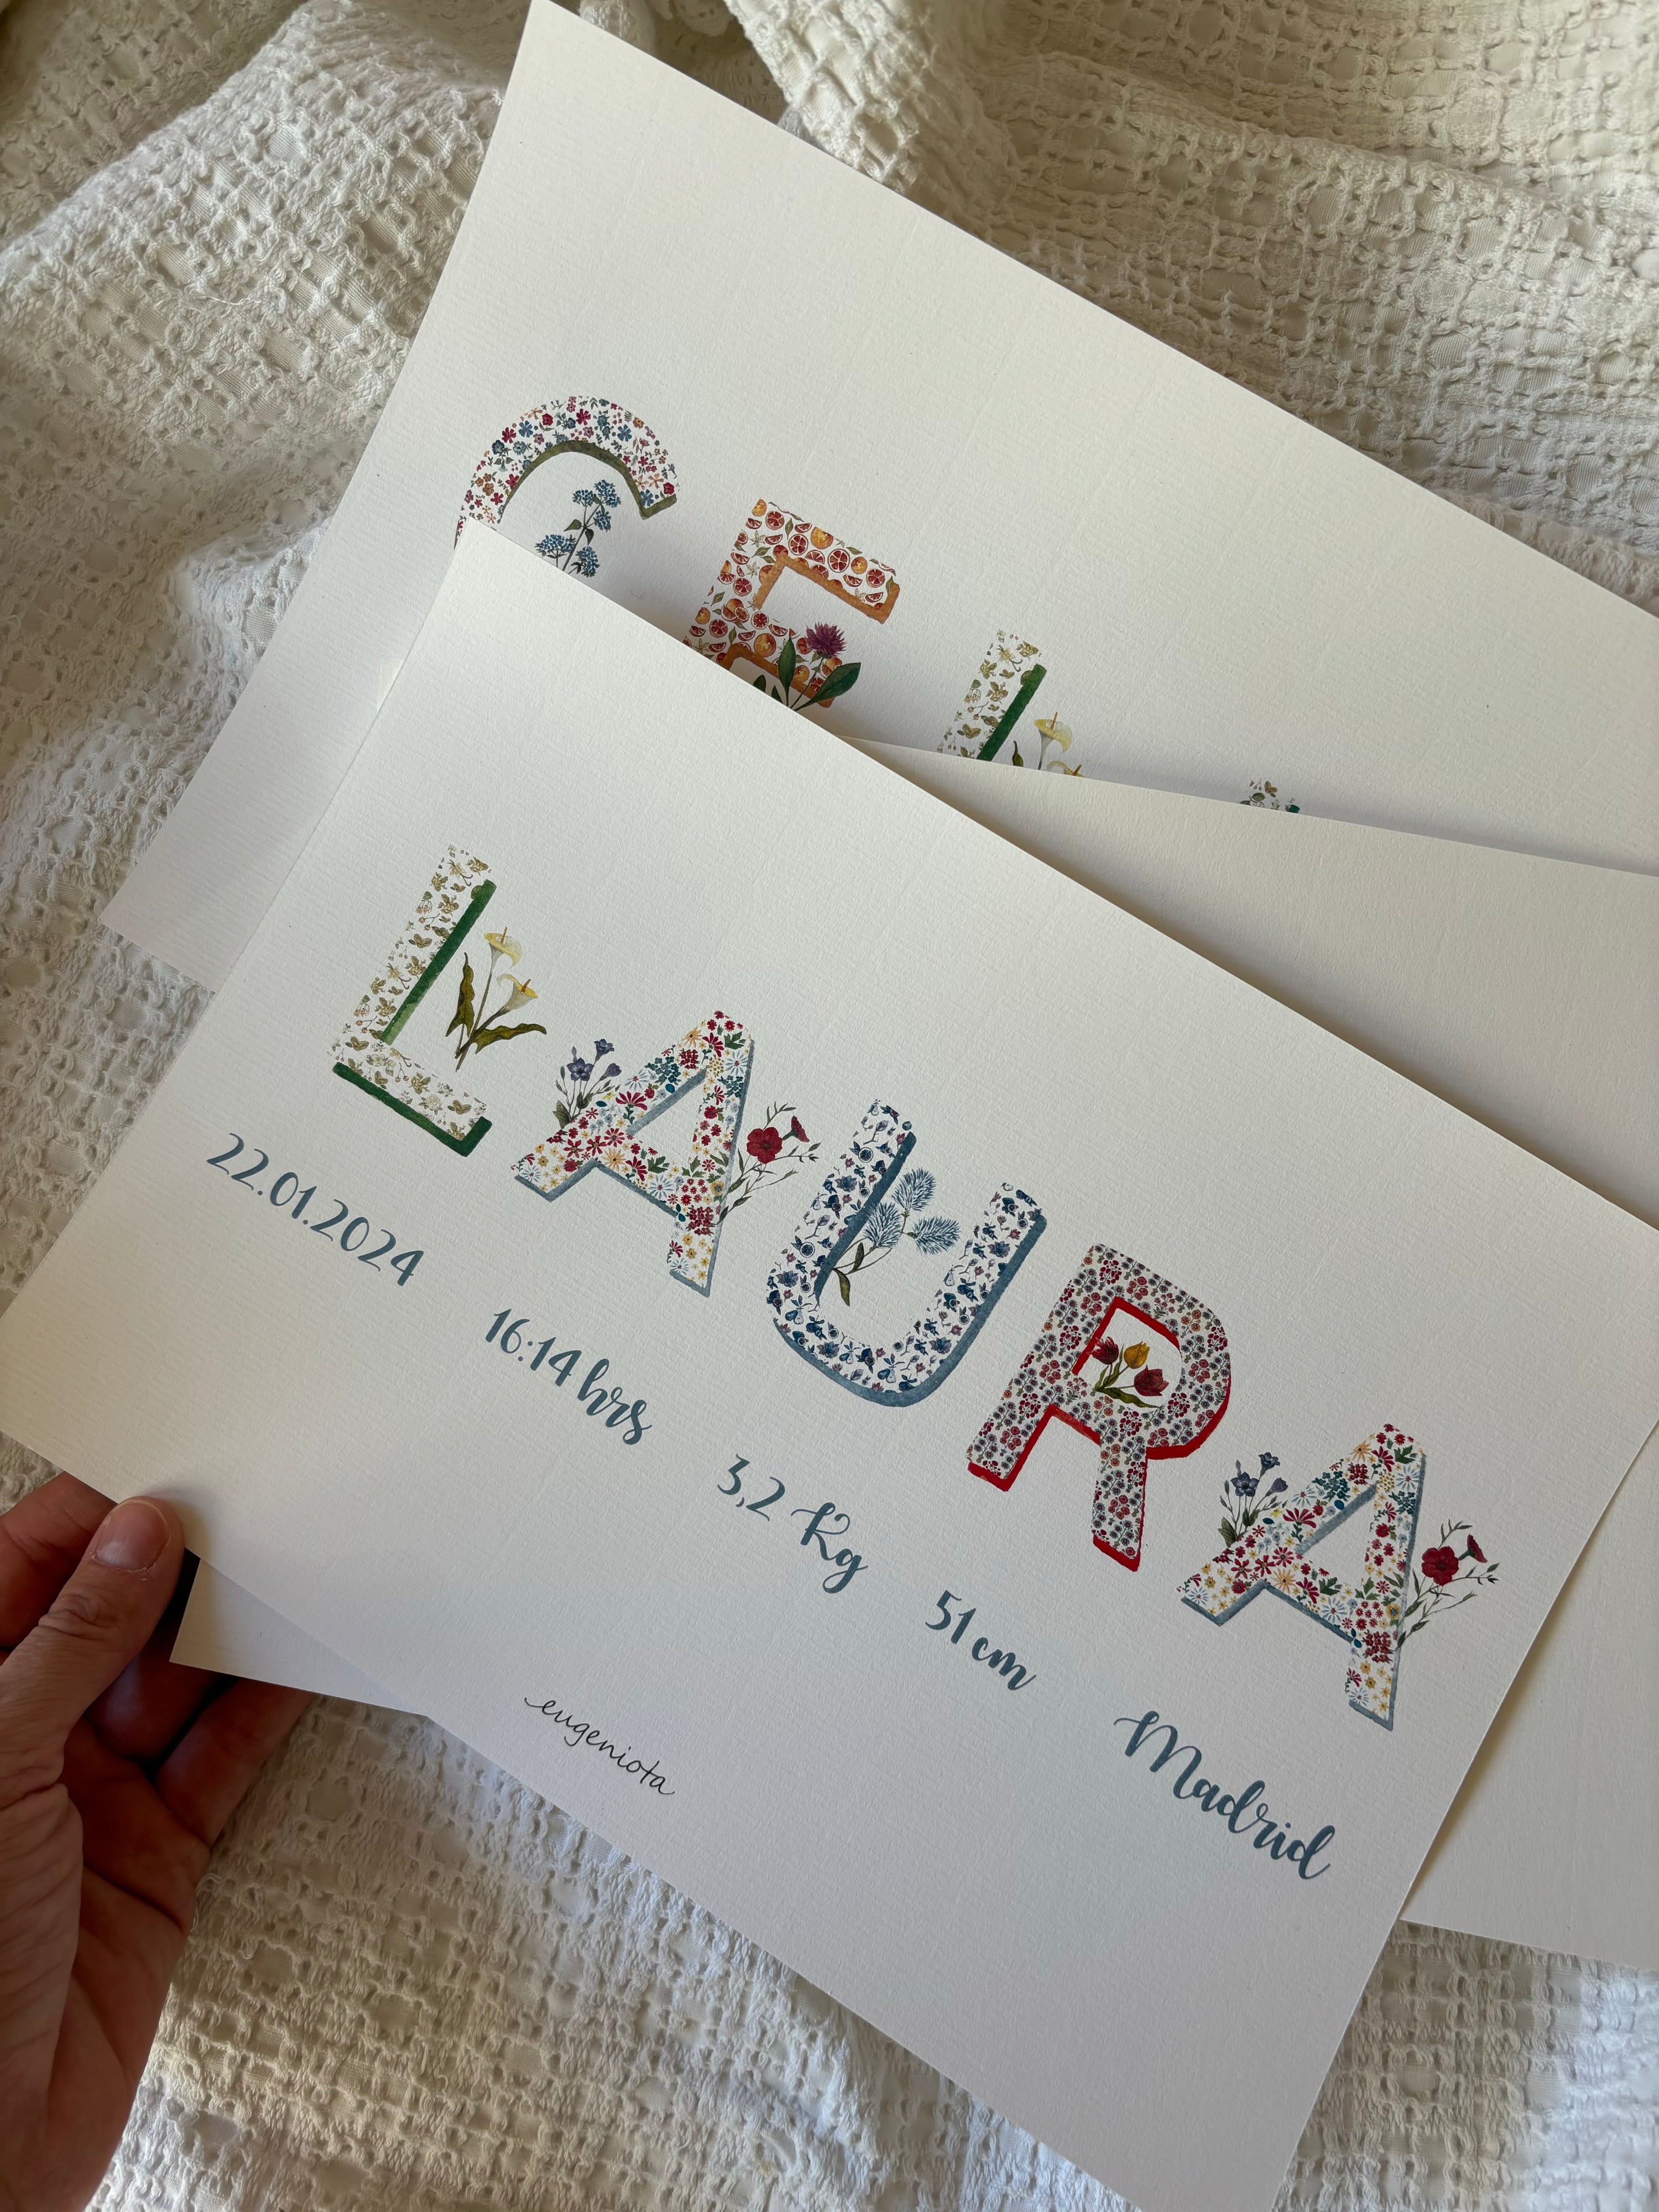 CEL
LAURA
22.01.2024 16:14 hrs 3,2 Kg 51 cm Madrid
eugeniota